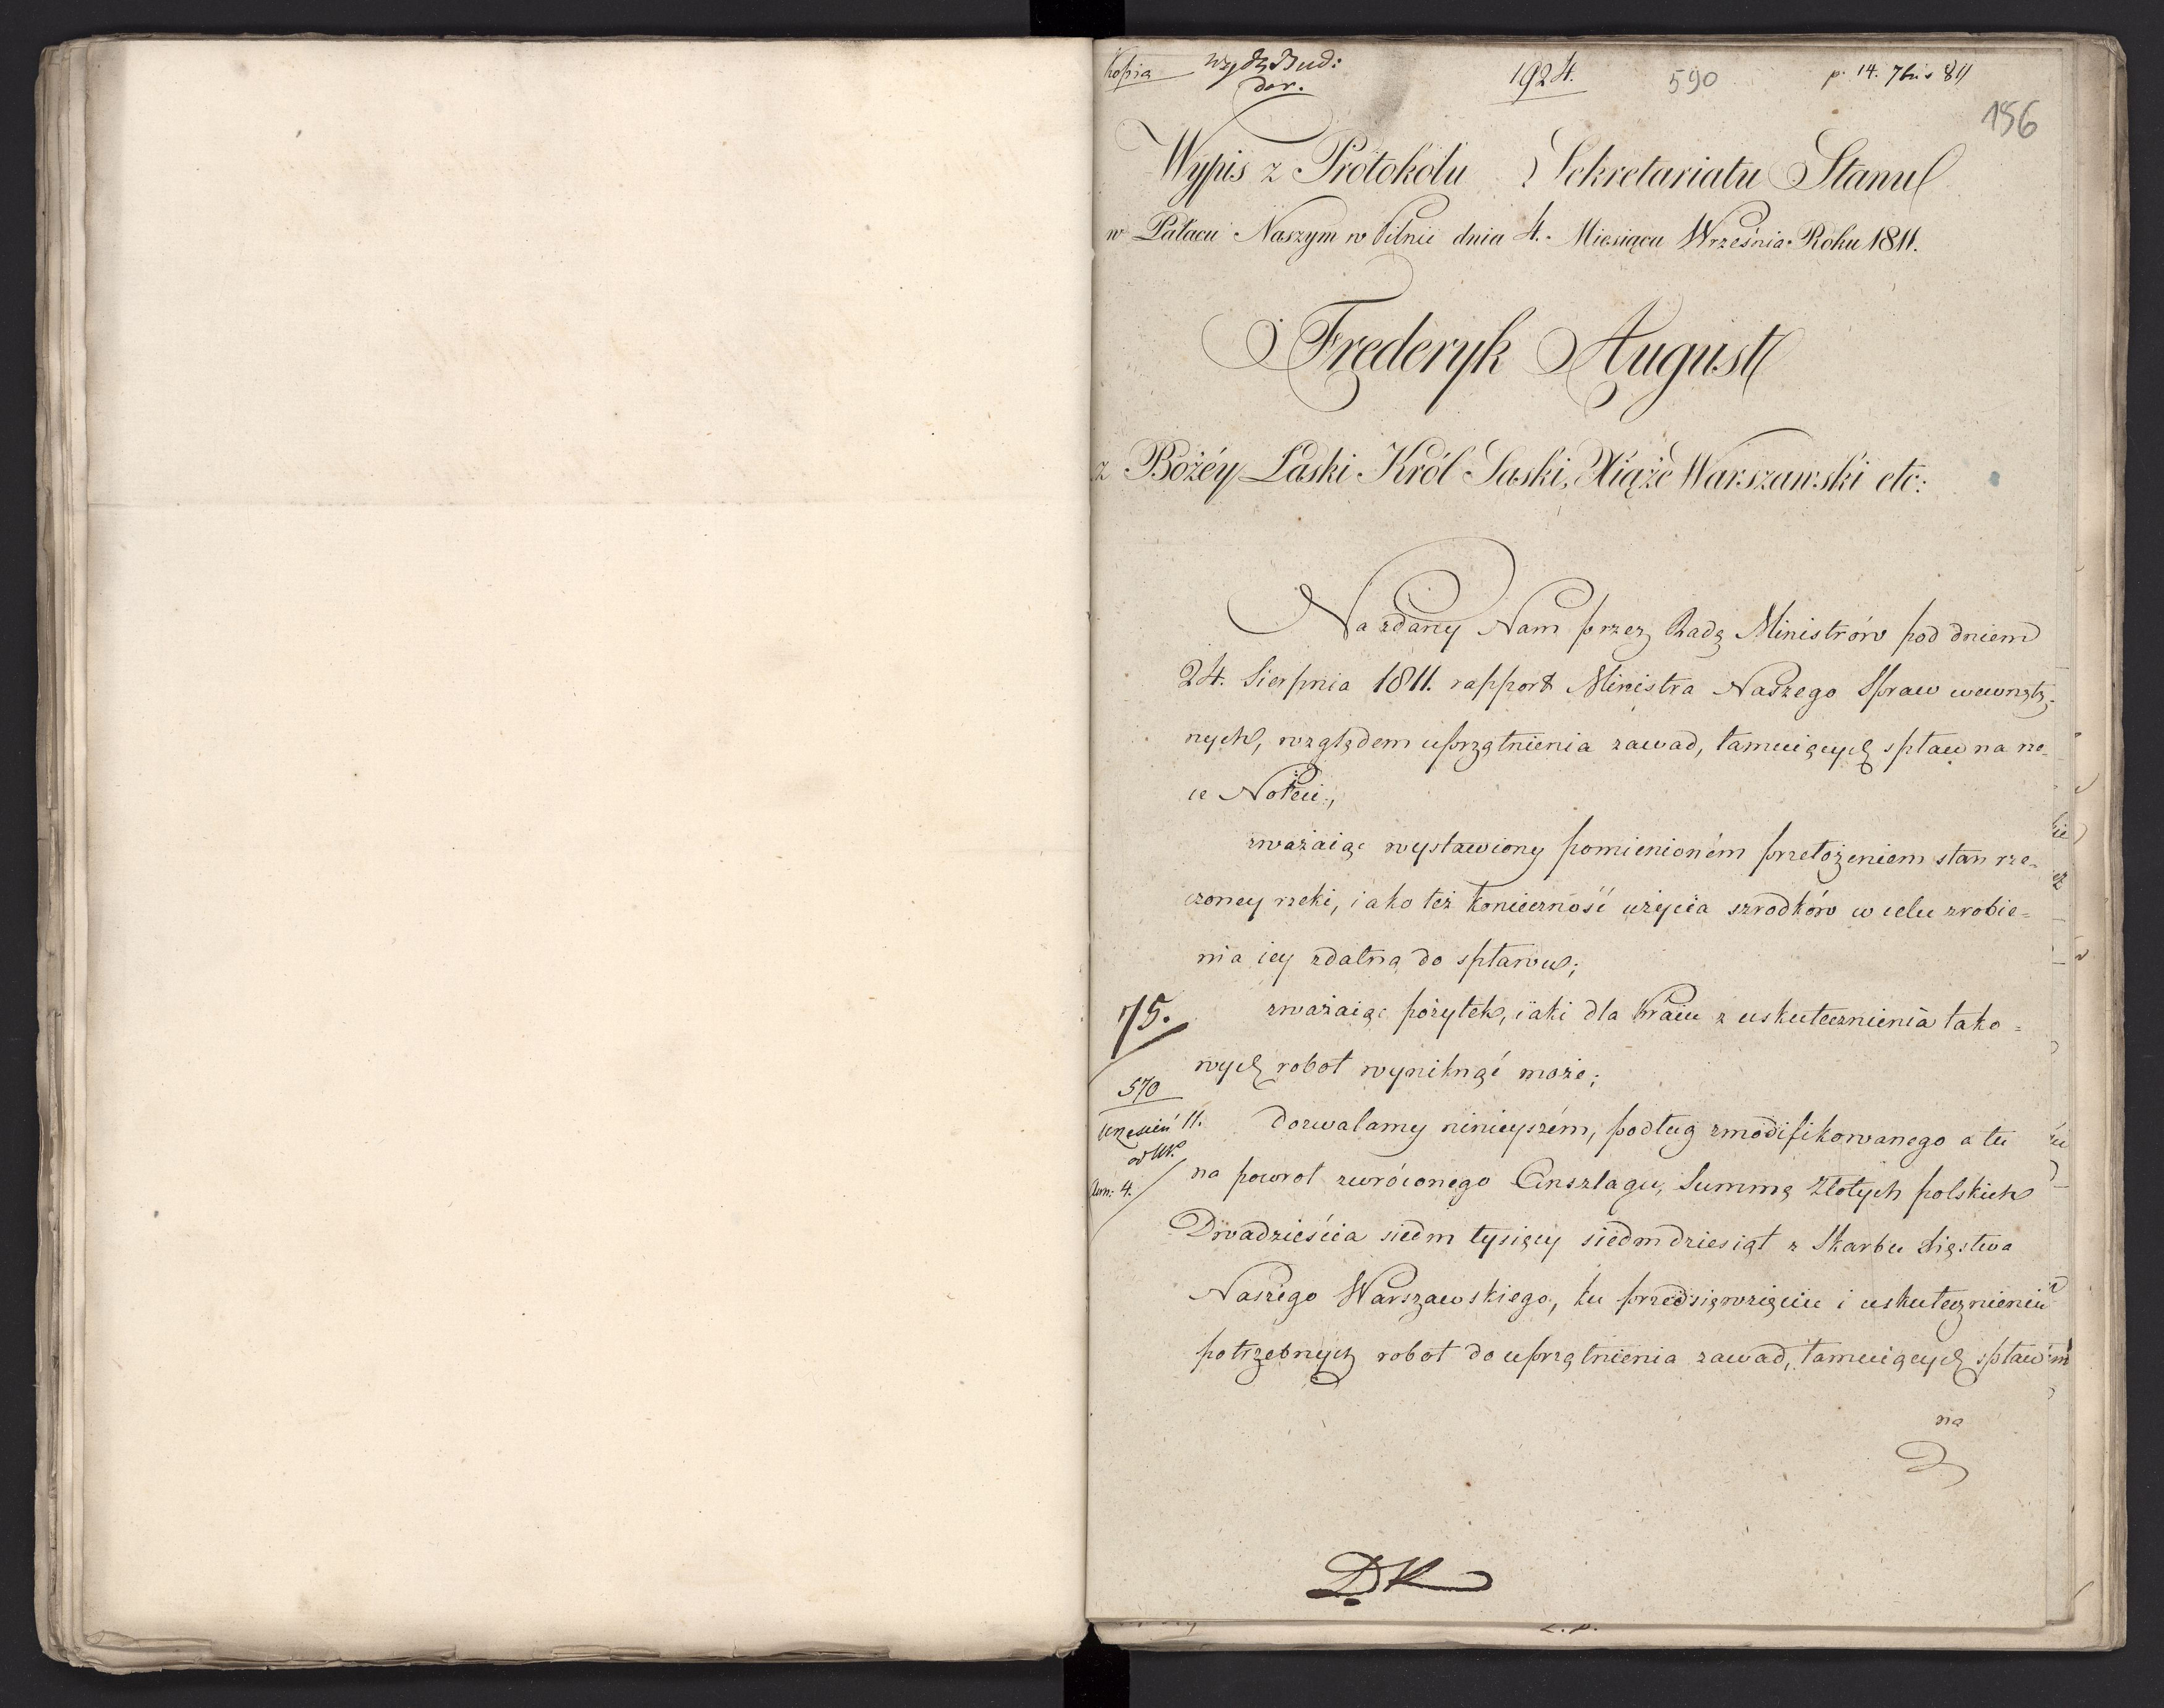 Kopia Wydz Bud:
dor.
1924.
590
p. 14. 7bris 811
156
Wypis z Protokólu Sekretariatu Stanu
w Pałacu Naszym w Pilnic dnia 4. Miesiąca Września Roku 1811.
Frederyk August
z Bożéy Łaski Król Saski, Xiąże Warszawski etc:
Na zdany Nam przez Radę Ministrów pod dniem
24. Sierpnia 1811. rapport Ministra Naszego Spraw wewnętrz-
nych, względem uprzątnienia zawad, tamuiących spław na rze-
ce Noteci,
zważaiąc wystawiony pomienioném przełożeniem stan rze-
czoney rzeki, iako też konieczność użycia szrodków w celu zrobie-
nia iey zdatną do spławu;
zważaiąc pożytek, iaki dla kraiu z uskutecznienia tako-
wych robot wyniknąć może;
75.
570
Wrzesień 11.
Num: 4.
dozwalamy ninieyszém, podług zmodifikowanego a tu
na powrot zwróconego Anszlagu, Summę Złotych polskich
Dwadzieścia siedm tysięcy siedmdziesiąt z Skarbu Xięstwa
Naszego Warszawskiego, ku przedsięwzięciu i uskutecznieniu
potrzebnych robot do uprzątnienia zawad, tamuiących spław
na
DK